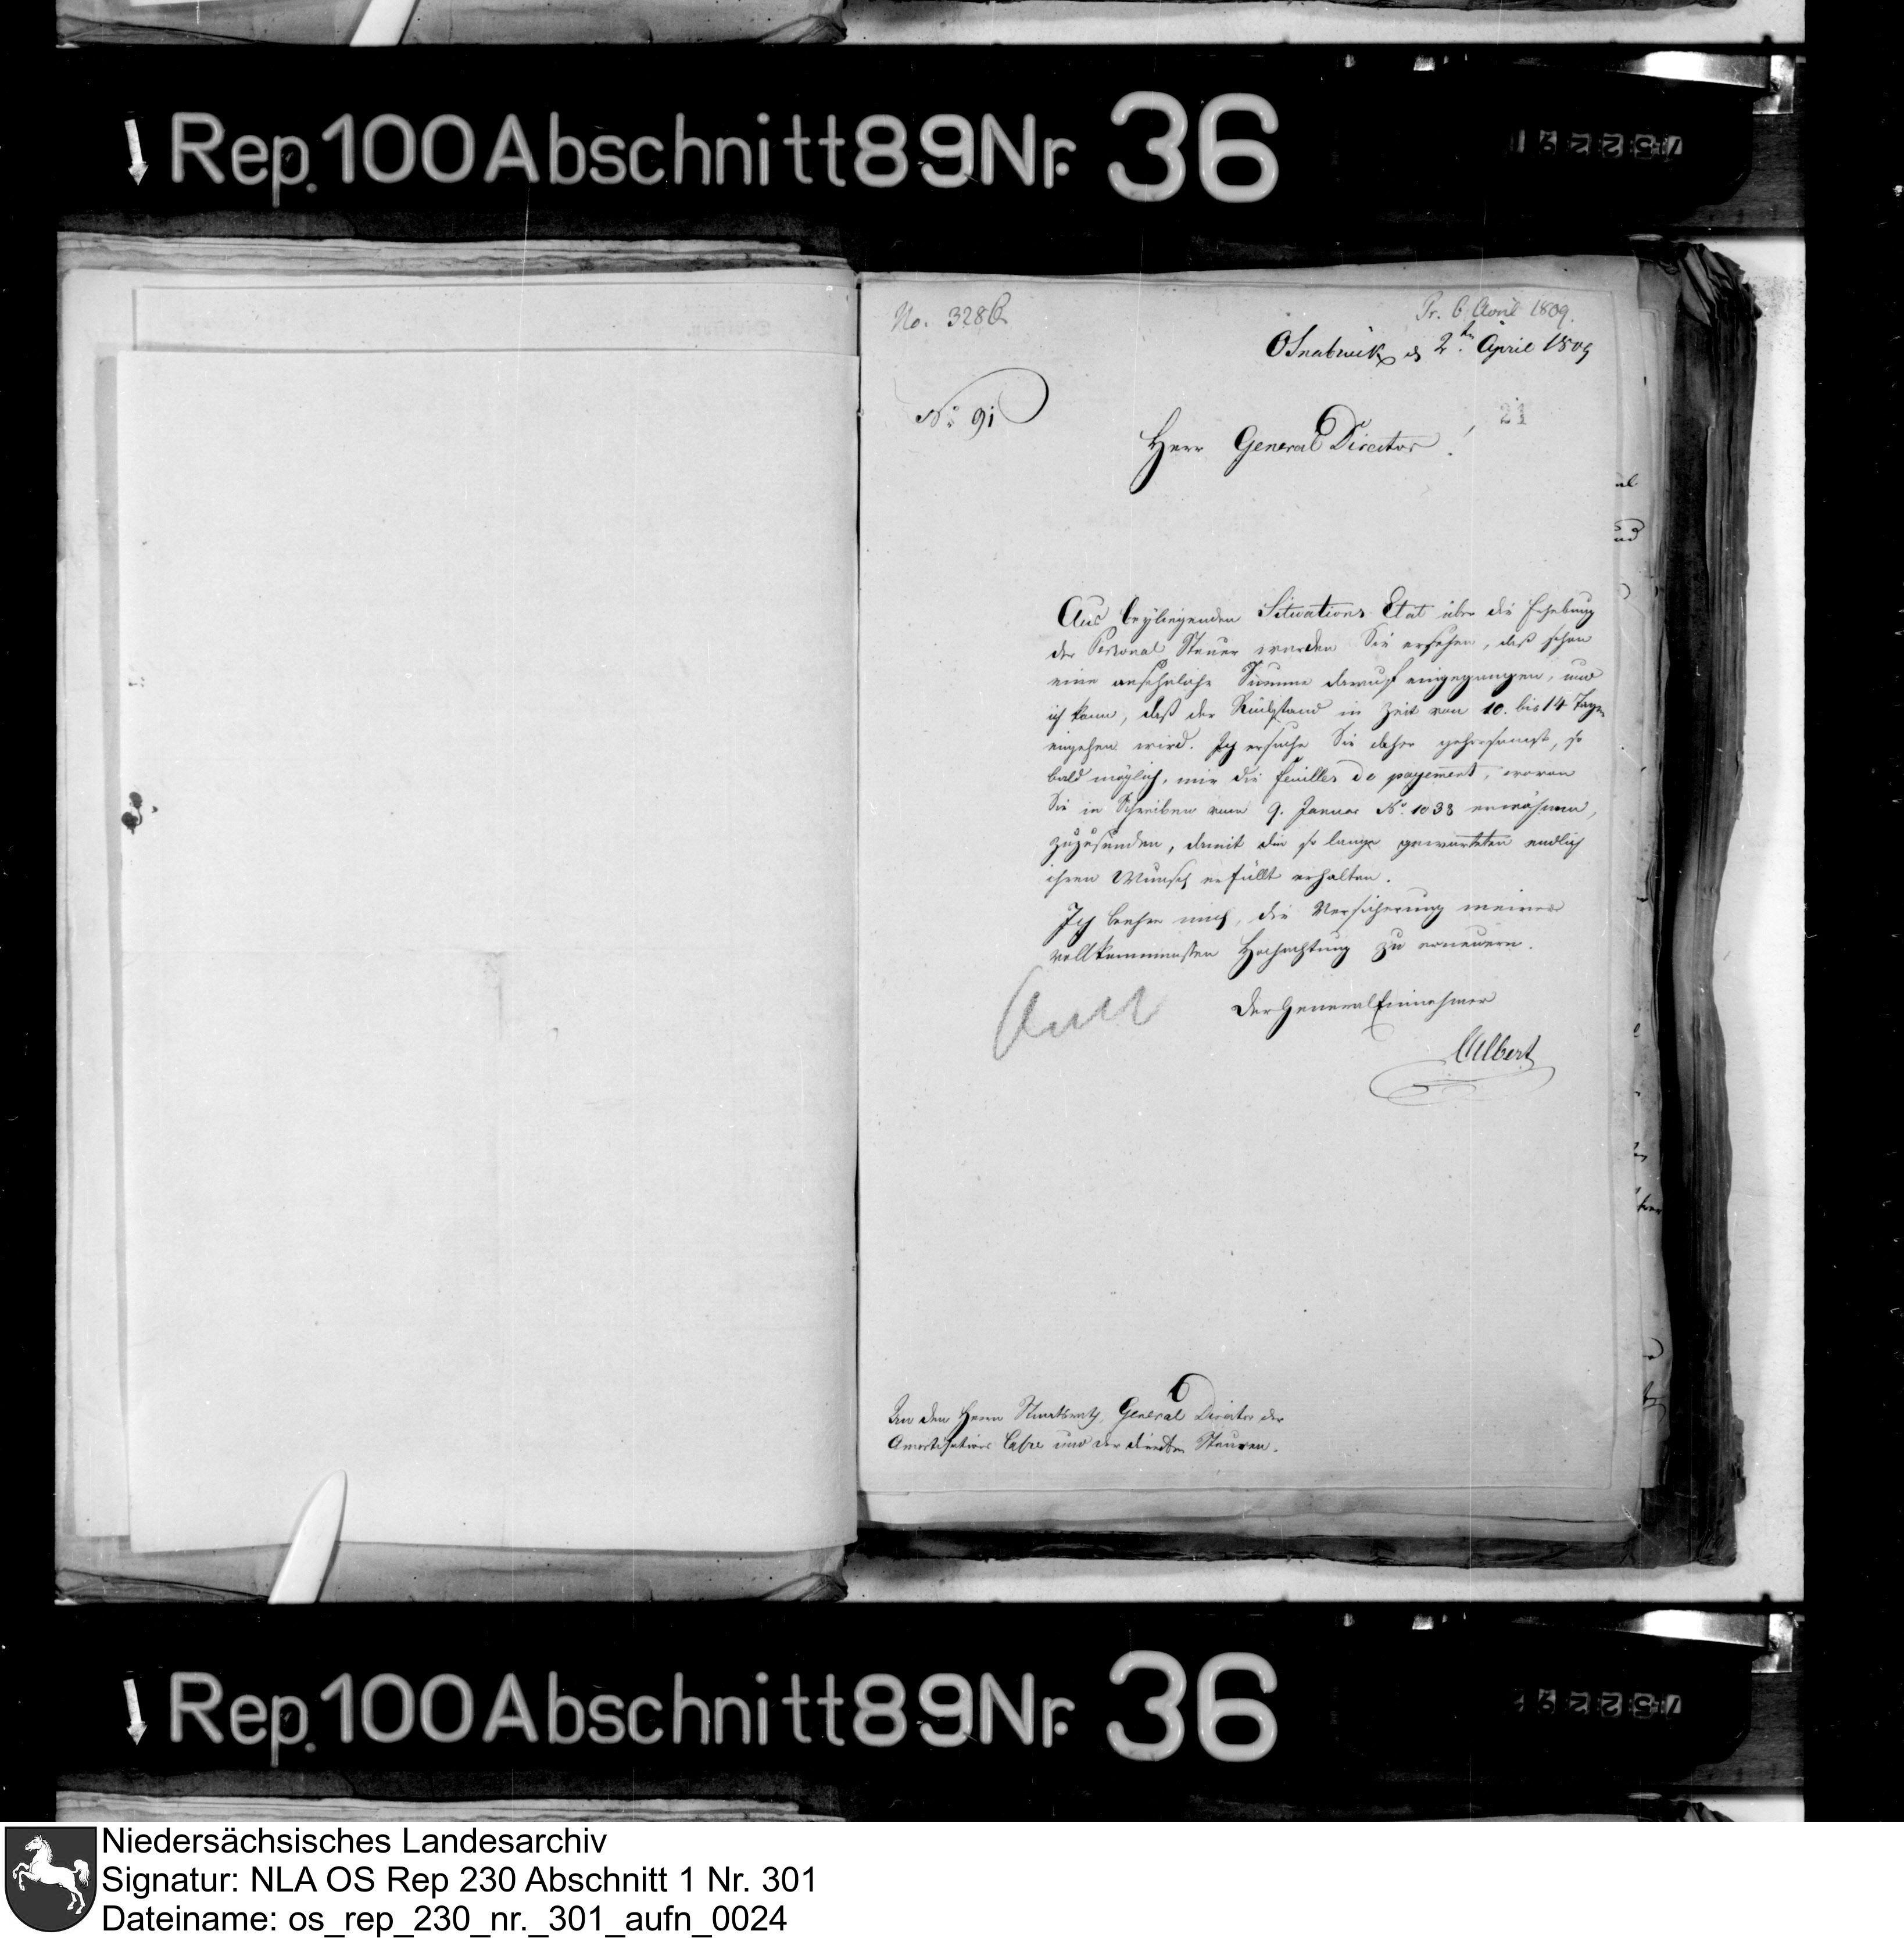 Rep. 100 Abschnitt 89 Nr. 36
No. 328
Pr. 6 April 1809.
Osnabrück d 2ten April 1809
No: 91
21
Herr General Director!
Aus beyliegenden Situations Etat über die Erhebung
der Personal Steuer werden Sie ersehen, daß schon
eine ansehnliche Summe darauf eingegangen, und
ich kann, daß der Rückstand in Zeit von 10. bis 14 Tagen
eingehen wird. Ich ersuche Sie daher gehorsamst, so
bald möglich, mir die feuilles de payement, wovon
Sie in Schreiben vom 9. Januar No. 1038 erwähnen,
zuzusenden, damit die so lange gewarteten endlich
ihren Wunsch erfüllt erhalten.
Ich beehre mich, die Versicherung meiner
vollkommensten Hochachtung zu erneuern.
Der General Einnehmer
Albert
An den Herrn Staatsrath, General Director der
Amortisations Casse und der directen Steuern.
Rep. 100 Abschnitt 89 Nr. 36
Niedersächsisches Landesarchiv
Signatur: NLA OS Rep 230 Abschnitt 1 Nr. 301
Dateiname: os_rep_230_nr._301_aufn_0024